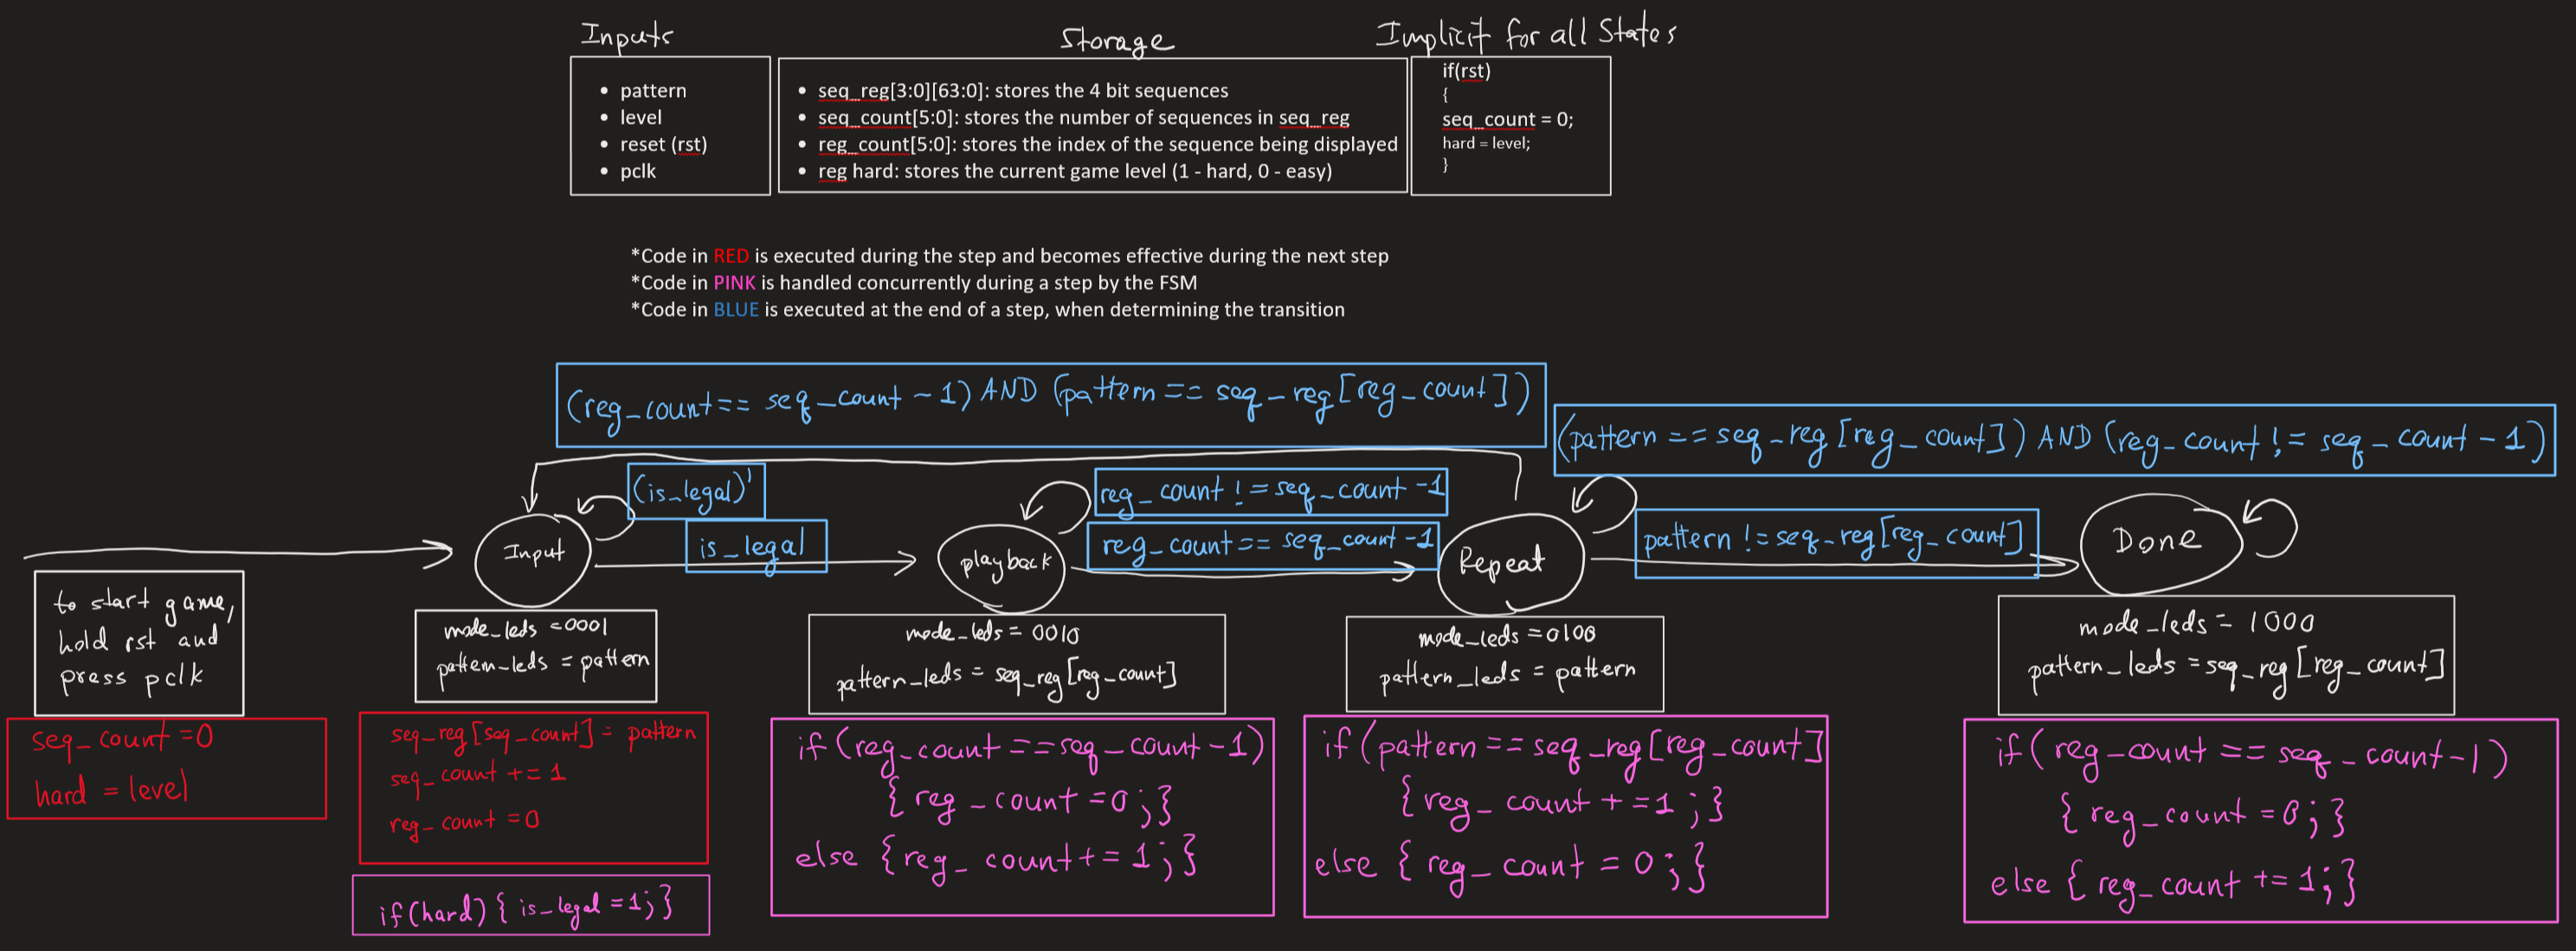 Inputs
• pattern
• level
• reset (rst)
• pclk
Storage
• seq_reg[3:0][63:0]: stores the 4 bit sequences
• seq_count[5:0]: stores the number of sequences in seq_reg
• reg_count[5:0]: stores the index of the sequence being displayed
• reg hard: stores the current game level (1 - hard, 0 - easy)
Implicit for all States
if(rst)
{
seq_count = 0;
hard = level;
}
*Code in RED is executed during the step and becomes effective during the next step
*Code in PINK is handled concurrently during a step by the FSM
*Code in BLUE is executed at the end of a step, when determining the transition
(reg_count == seq_count - 1) AND (pattern == seq_reg[reg_count])
(pattern == seq_reg[reg_count]) AND (reg_count != seq_count - 1)
(is_legal)'
is_legal
reg_count != seq_count -1
reg_count == seq_count -1
pattern != seq_reg[reg_count]
Input
playback
Repeat
Done
to start game,
hold rst and
press pclk
seq_count = 0
hard = level
mode_leds = 0001
pattern_leds = pattern
seq_reg[seq_count] = pattern
seq_count += 1
reg_count = 0
if(hard) { is_legal = 1; }
mode_leds = 0010
pattern_leds = seq_reg[reg_count]
if (reg_count == seq_count - 1)
{ reg_count = 0; }
else { reg_count += 1; }
mode_leds = 0100
pattern_leds = pattern
if (pattern == seq_reg[reg_count]
{ reg_count += 1; }
else { reg_count = 0; }
mode_leds = 1000
pattern_leds = seq_reg[reg_count]
if ( reg_count == seq_count - 1)
{ reg_count = 0; }
else { reg_count += 1; }